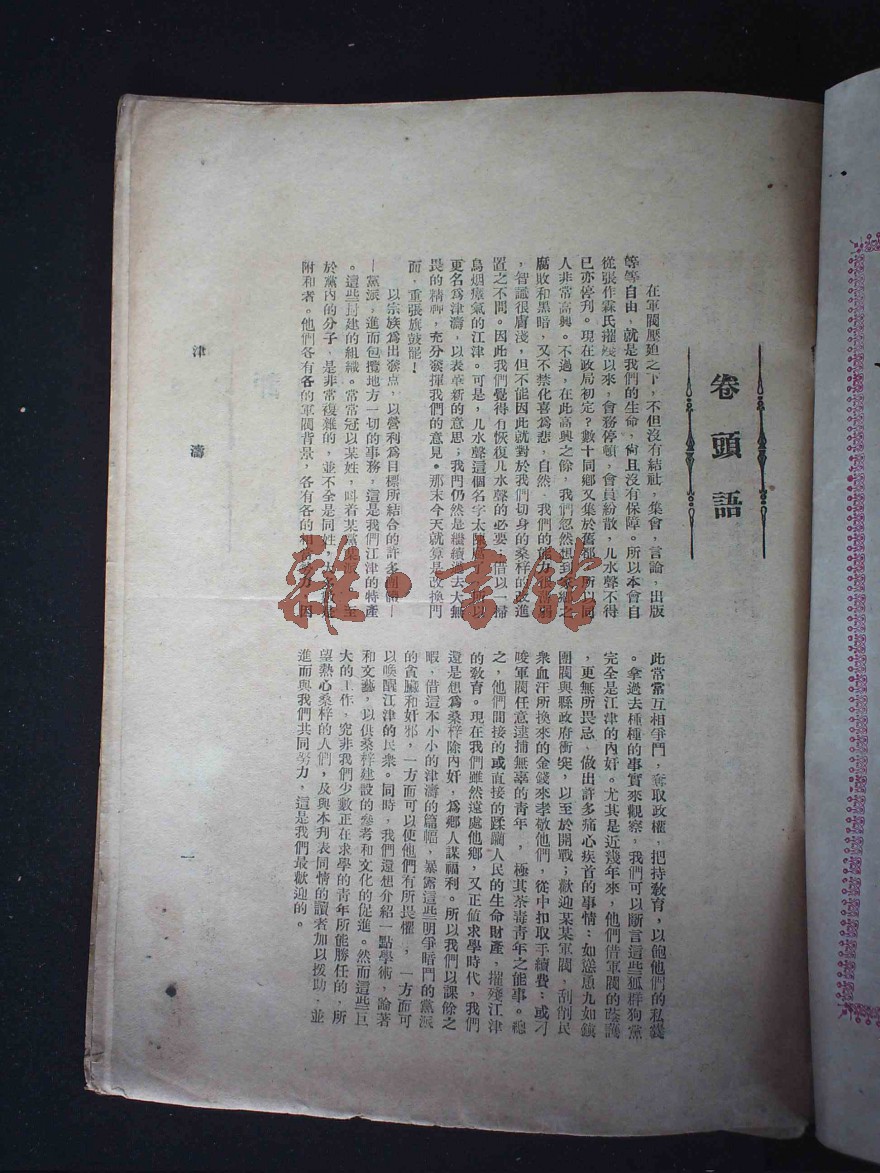 卷頭語
在軍閥壓廹之下，不但沒有結社，集會，言論，出版
等等自由，就是我們的生命，尙且沒有保障。所以本會自
從張作霖氏摧殘以來，會務停頓，會員紛散，几水聲不得
已亦停刋。現在政局初定？數十同鄉又集於舊都，所以同
人非常高興。不過，在此高興之餘，我們忽然想到家鄉之
腐敗和黑暗，又不禁化喜爲悲，自然，我們的能力很薄弱
，智識很膚淺，但不能因此就對於我們切身的桑梓的改進
置之不問。因此我們覺得有恢復几水聲的必要；借以一掃
烏烟瘴氣的江津。可是，几水聲這個名字太陳腐了，所以
更名爲津濤，以表革新的意思；我門仍然是繼續過去大無
畏的精神，充分發揮我們的意見。那末今天就算是改換門
面，重張旗鼓罷！
以宗族爲出發点，以營利爲目標所結合的許多團體—
—黨派，進而包攬地方一切的事務，這是我們江津的特產
。這些封建的組織。常常冠以某姓，呌着某黨某派。至
於黨內的分子，是非常複雜的，並不全是同姓，
附和者。他們各有各的軍閥背景，各有各的
此常常互相爭鬥，奪取政權，把持敎育，以飽他們的私囊
。拿過去種種的事實來觀察，我們可以断言這些狐群狗黨
完全是江津的內奸。尤其是近幾年來，他們借軍閥的蔭護
，更無所畏忌、做出許多痛心疾首的事情：如慫恿九如鎮
團閥與縣政府衝突，以至於開戰；歡迎某某軍閥，刮削民
衆血汗所換來的金錢來孝敬他們，從中扣取手續費：或刁
唆軍閥任意逮捕無辜的靑年，極其荼毒靑年之能事。總
之，他們間接的或直接的蹂躪人民的生命財產，摧殘江津
的敎育。現在我們雖然遠處他鄉，又正値求學時代，我們
還是想爲桑梓除內奸，爲鄉人謀福利。所以我們以課餘之
暇，借這本小小的津濤的篇幅，暴露這些明爭暗鬥的黨派
的貪臟和奸邪，一方面可以使他們有所畏懼，一方面可
以喚醒江津的民衆。同時，我們還想介紹一點學術，論著
和文藝，以供桑梓建設的參考和文化的促進。然而這些巨
大的工作，究非我們少數正在求學的靑年所能勝任的，所
望熱心桑梓的人們，及與本刋表同情的讀者加以援助，並
進而與我們共同努力，這是我們最歡迎的。
津濤
一
雜·書館